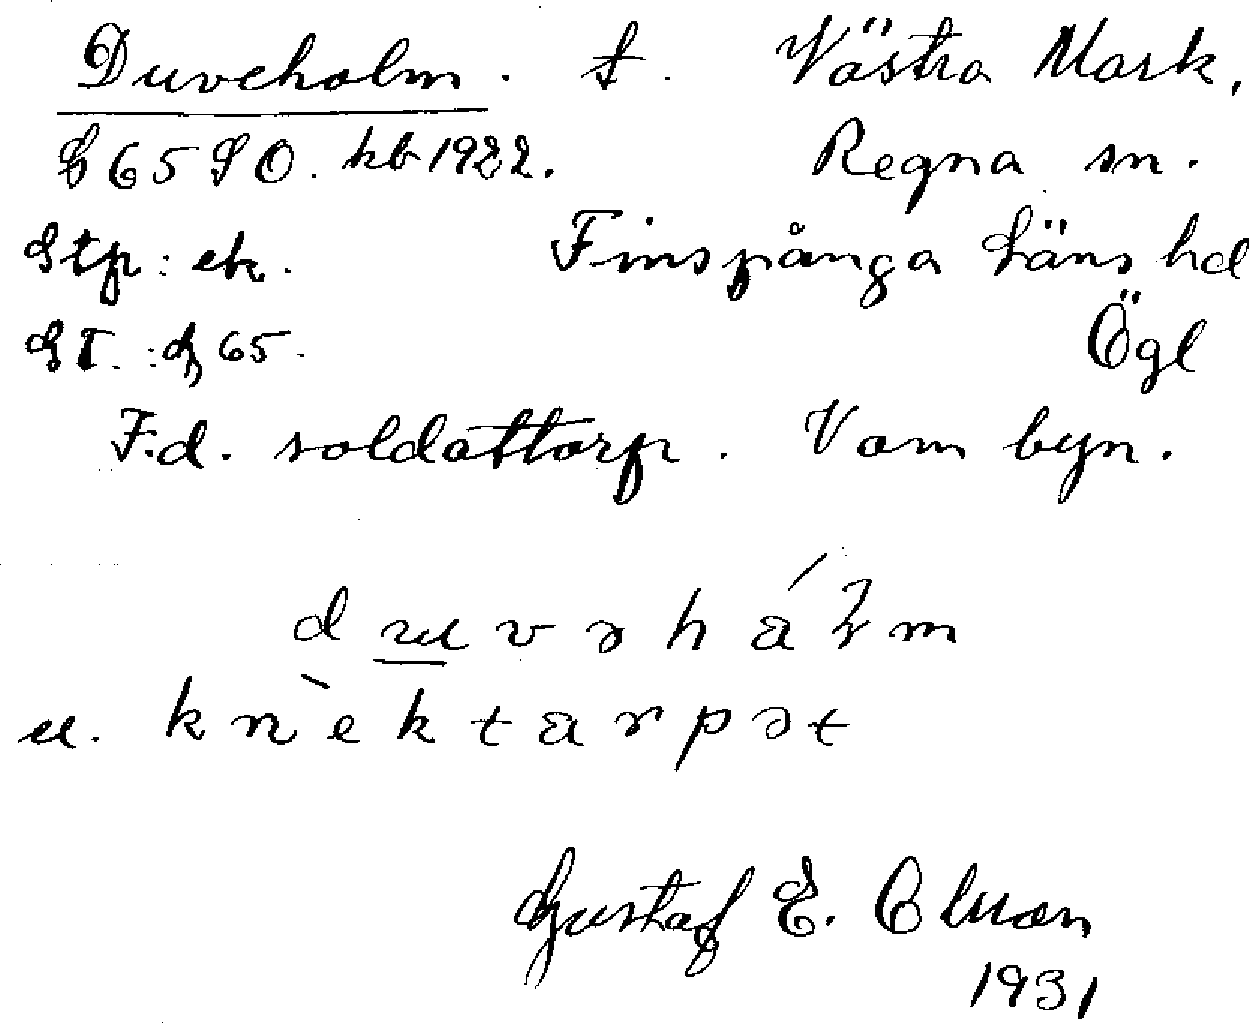 Duveholm. t. Västra Mark,
G 65 S O. kb 1922. Regna sn.
Stp: ek. Finspånga läns hd
GT.: G 65. Ögl
F.d. soldattorp. V om byn.
d u v ə h á l m
u. k n è k t a r p ə t
Gustaf E.
1931